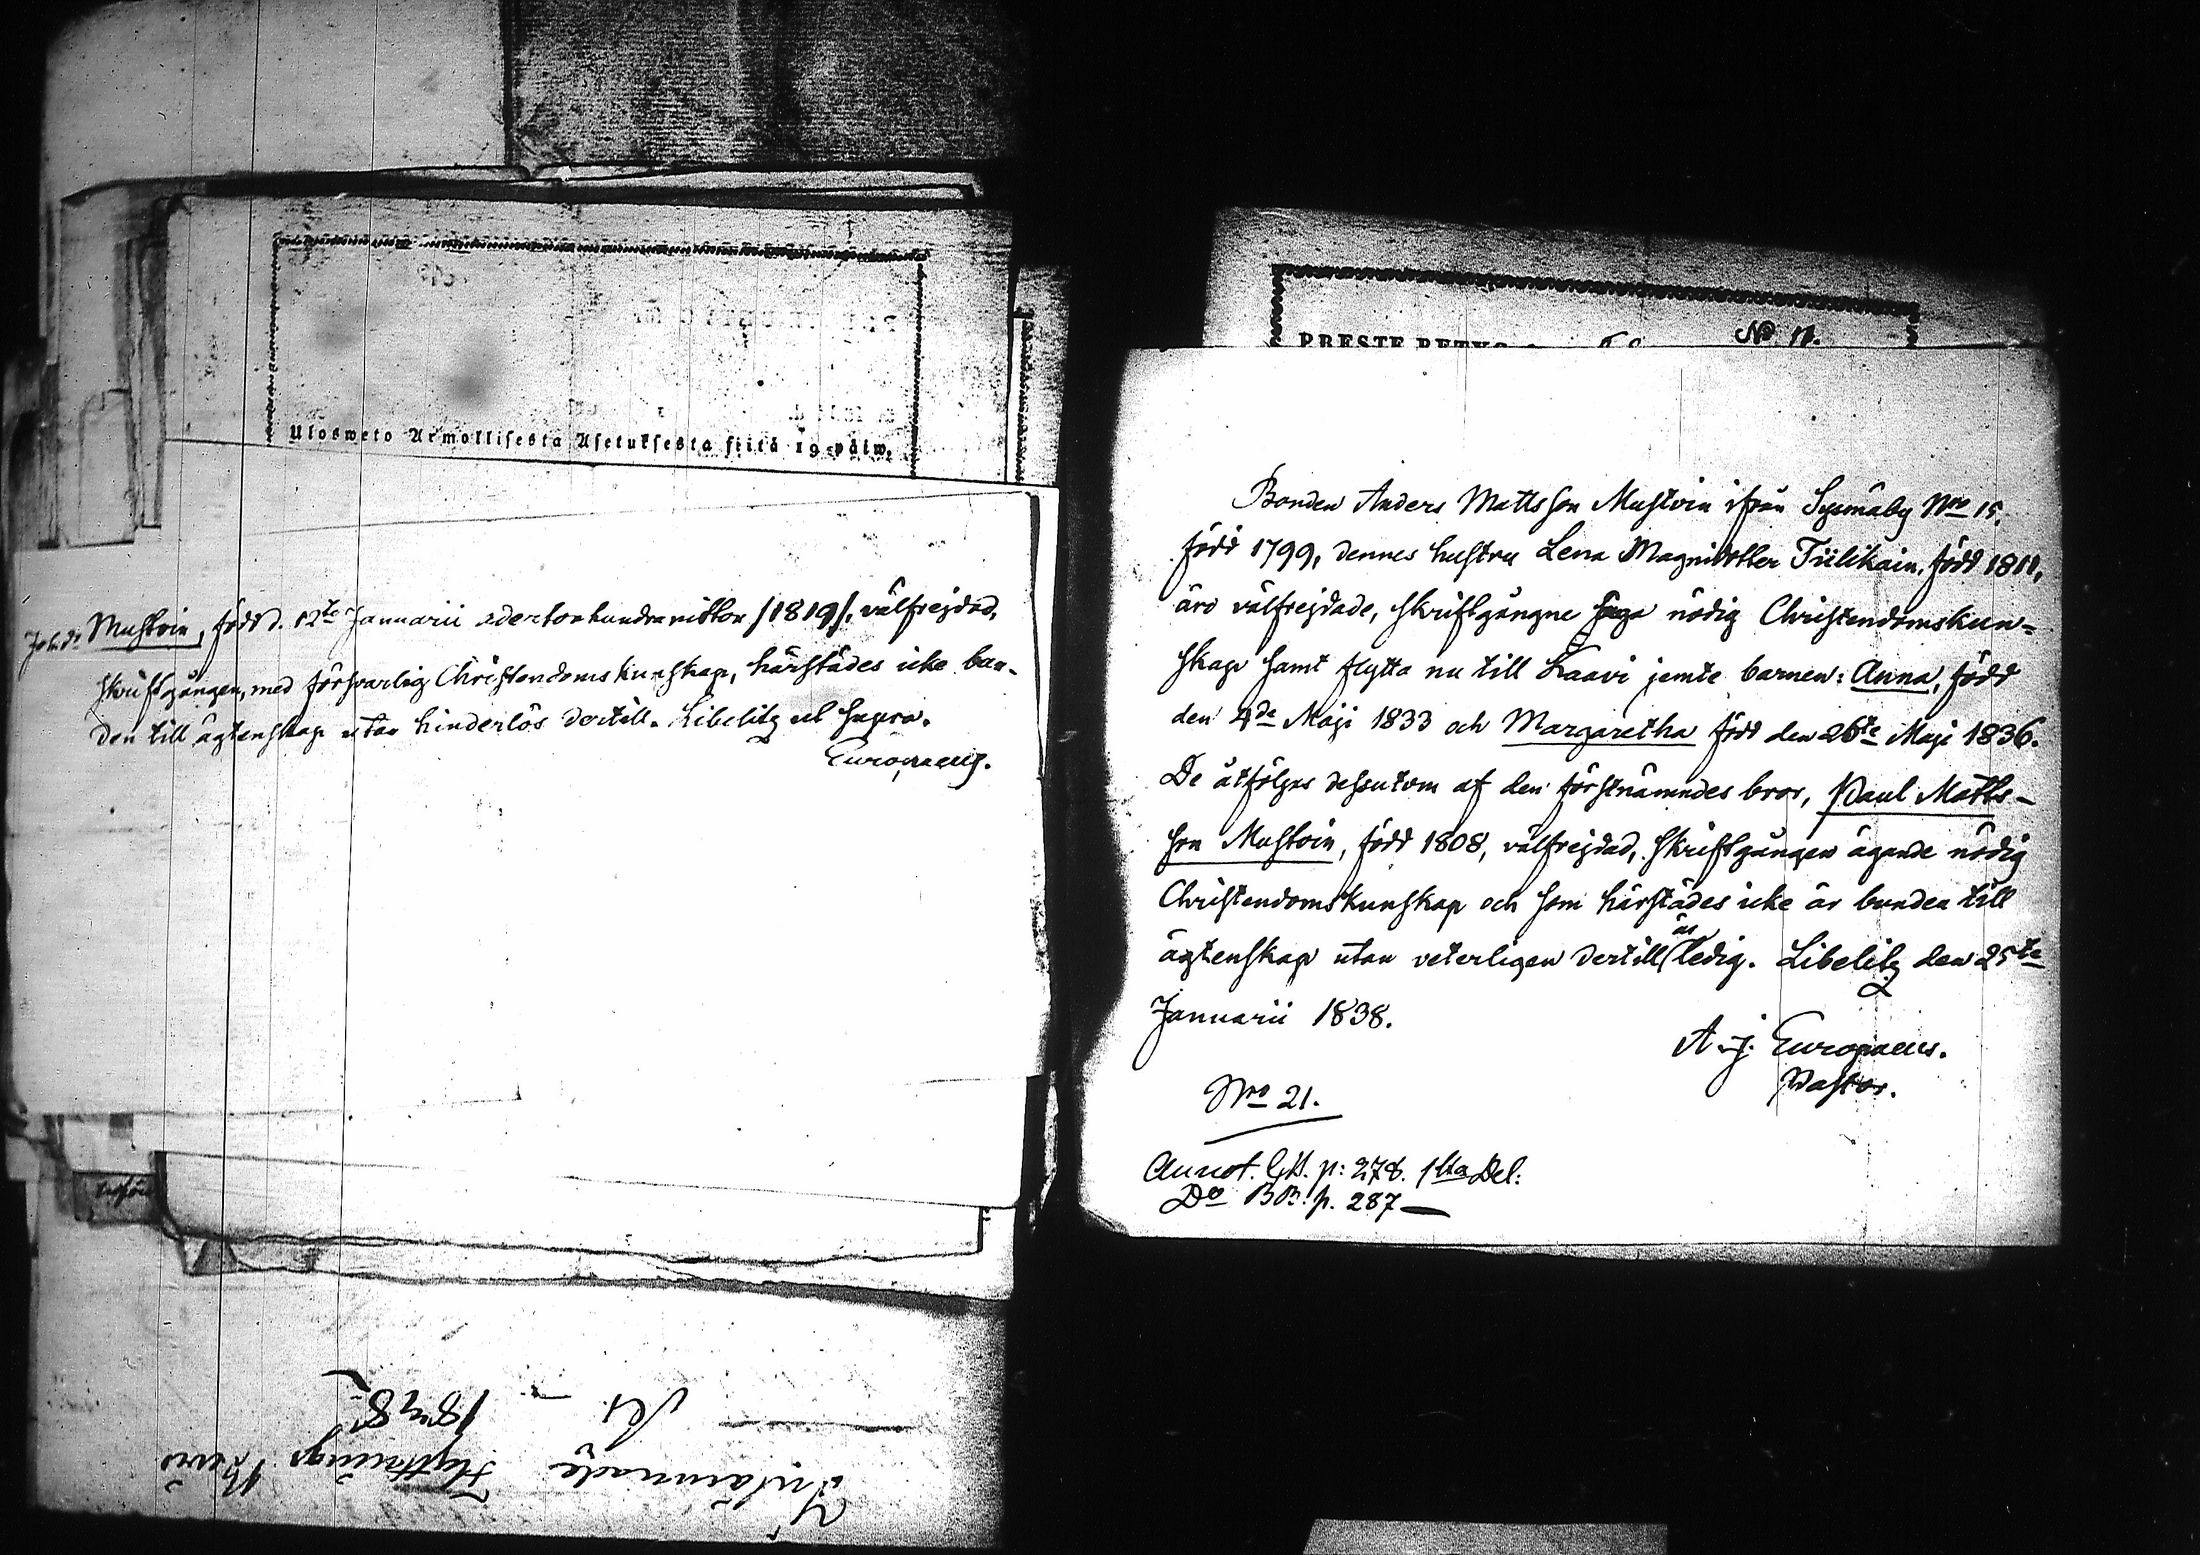 Ulosweto Armollisesta Asetuksesta siitä 19 päiw.
Mustoin, född d. 12te Januarii adertonhundranitton /1819/, välfrejdad,
skriftgången, med försvarlig Christendomskunskap, härstädes icke bun-
den till ägtenskap utan hinderlös dertill. Libelitz ut supra.
Europaeus.
Inlämnade Flyttnings Bevis
1838
PRESTE BETYG No 11.
Bonden Anders Mattsson Mustoin ifrån Sysmäby Nro 15.
född 1799, dennes hustru Lena Magnidotter Tiilikain, född 1811,
äro välfrejdade, skriftgångne äga nödig Christendomskun-
skap samt flytta nu till Kaavi jemte barnen: Anna, född
den 4de Maji 1833 och Margaretha född den 26te Maji 1836.
De åtföljas dessutom af den förstnämndes bror, Paul Matts-
son Mustoin, född 1808, välfrejdad, skriftgången ägande nödig
Christendomskunskap och som härstädes icke är bunden till
ägtenskap utan veterligen dertill är ledig. Libelitz den 25te
Januarii 1838.
A. J. Europaeus.
Pastor.
Nro 21.
Annot. p: 278. 1sta Del:
Do BB. p. 287